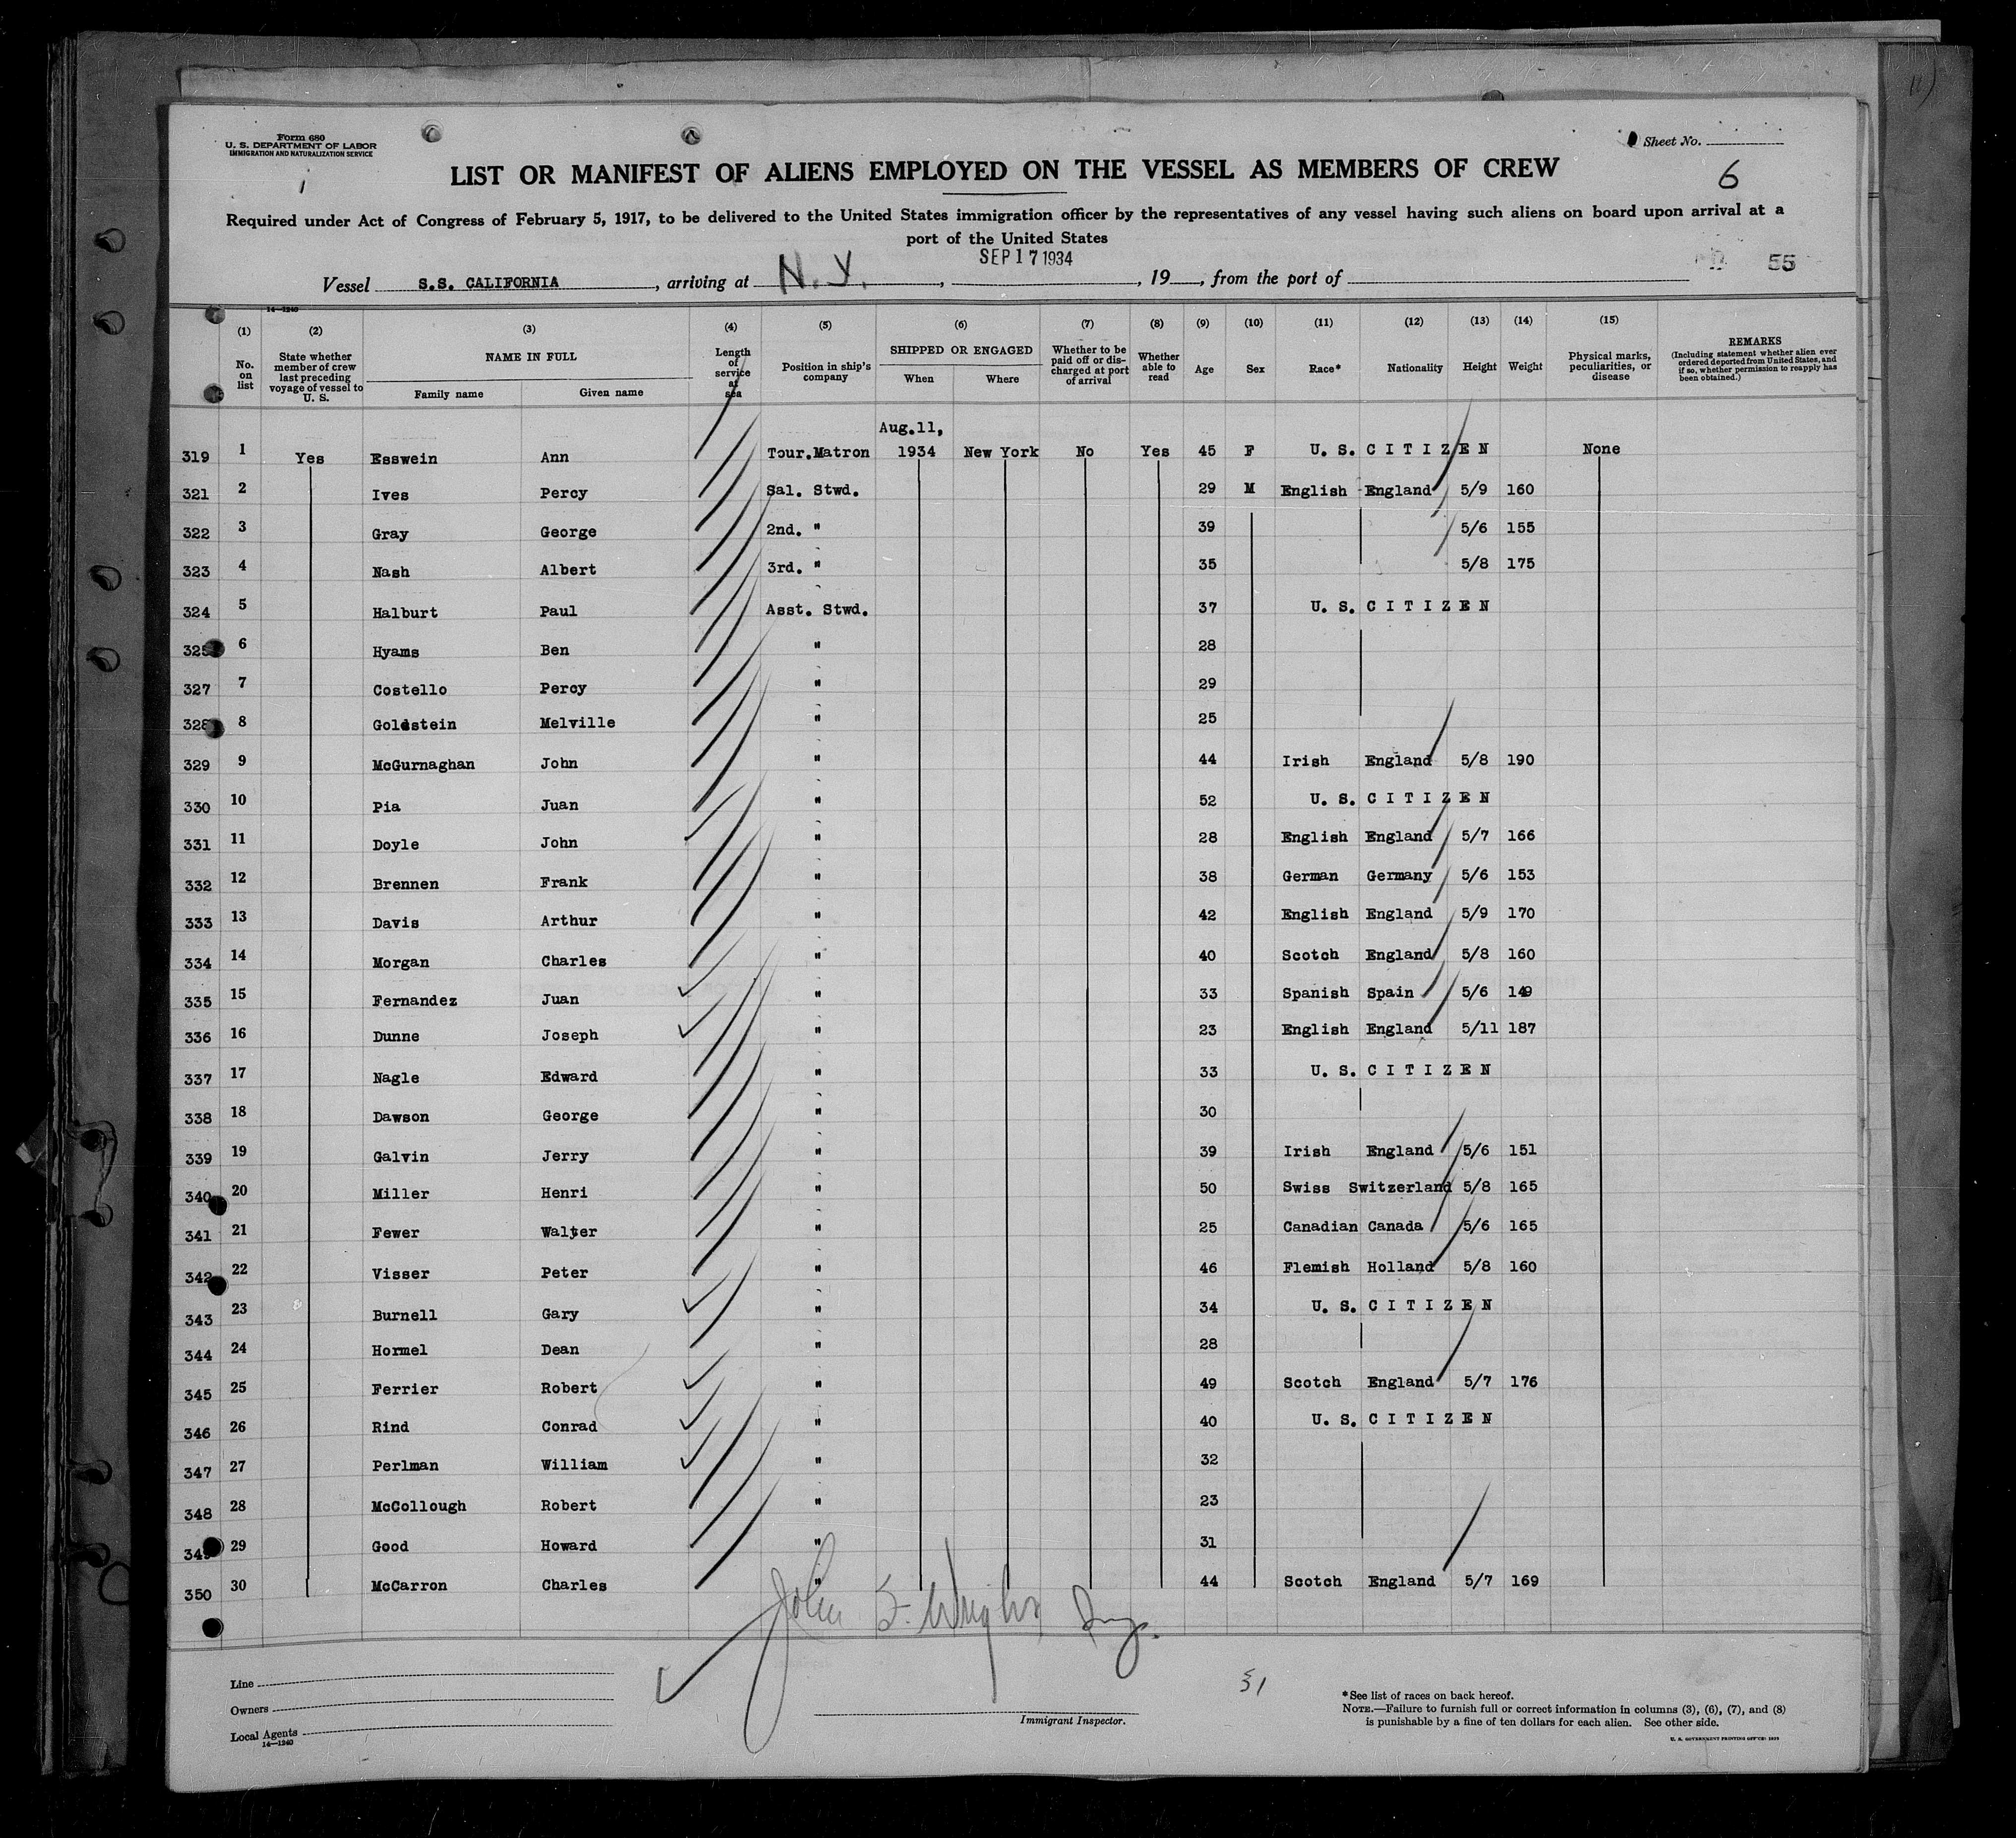 Form 680
U. S. DEPARTMENT OF LABOR
IMMIGRATION AND NATURALIZATION SERVICE
Sheet No.
6
LIST OR MANIFEST OF ALIENS EMPLOYED ON THE VESSEL AS MEMBERS OF CREW
Required under Act of Congress of February 5, 1917, to be delivered to the United States immigration officer by the representatives of any vessel having such aliens on board upon arrival at a
port of the United States
SEP 17 1934
55
Vessel S.S. CALIFORNIA, arriving at N.Y., , 19 , from the port of
14—1240
(1) (2) (3) (4) (5) (6) (7) (8) (9) (10) (11) (12) (13) (14) (15)
No. on list
State whether member of crew last preceding voyage of vessel to U. S.
NAME IN FULL
Family name Given name
Length of service at sea
Position in ship's company
SHIPPED OR ENGAGED
When Where
Whether to be paid off or discharged at port of arrival
Whether able to read
Age Sex Race* Nationality Height Weight
Physical marks, peculiarities, or disease
REMARKS
(Including statement whether alien ever ordered deported from United States, and if so, whether permission to reapply has been obtained.)
Aug.11,
319 1 Yes Esswein Ann Tour.Matron 1934 New York No Yes 45 F U. S. CITIZEN None
321 2 Ives Percy Sal. Stwd. 29 M English England 5/9 160
322 3 Gray George 2nd. " 39 5/6 155
323 4 Nash Albert 3rd. " 35 5/8 175
324 5 Halburt Paul Asst. Stwd. 37 U. S. CITIZEN
325 6 Hyams Ben " 28
327 7 Costello Percy " 29
328 8 Goldstein Melville " 25
329 9 McGurnaghan John " 44 Irish England 5/8 190
330 10 Pia Juan " 52 U. S. CITIZEN
331 11 Doyle John " 28 English England 5/7 166
332 12 Brennen Frank " 38 German Germany 5/6 153
333 13 Davis Arthur " 42 English England 5/9 170
334 14 Morgan Charles " 40 Scotch England 5/8 160
335 15 Fernandez Juan " 33 Spanish Spain 5/6 149
336 16 Dunne Joseph " 23 English England 5/11 187
337 17 Nagle Edward " 33 U. S. CITIZEN
338 18 Dawson George " 30
339 19 Galvin Jerry " 39 Irish England 5/6 151
340 20 Miller Henri " 50 Swiss Switzerland 5/8 165
341 21 Fewer Walter " 25 Canadian Canada 5/6 165
342 22 Visser Peter " 46 Flemish Holland 5/8 160
343 23 Burnell Gary " 34 U. S. CITIZEN
344 24 Hormel Dean " 28
345 25 Ferrier Robert " 49 Scotch England 5/7 176
346 26 Rind Conrad " 40 U. S. CITIZEN
347 27 Perlman William " 32
348 28 McCollough Robert " 23
349 29 Good Howard " 31
350 30 McCarron Charles " 44 Scotch England 5/7 169
John S. Wright
Line
Owners
Local Agents
14—1240
Immigrant Inspector.
51
*See list of races on back hereof.
NOTE.—Failure to furnish full or correct information in columns (3), (6), (7), and (8)
is punishable by a fine of ten dollars for each alien. See other side.